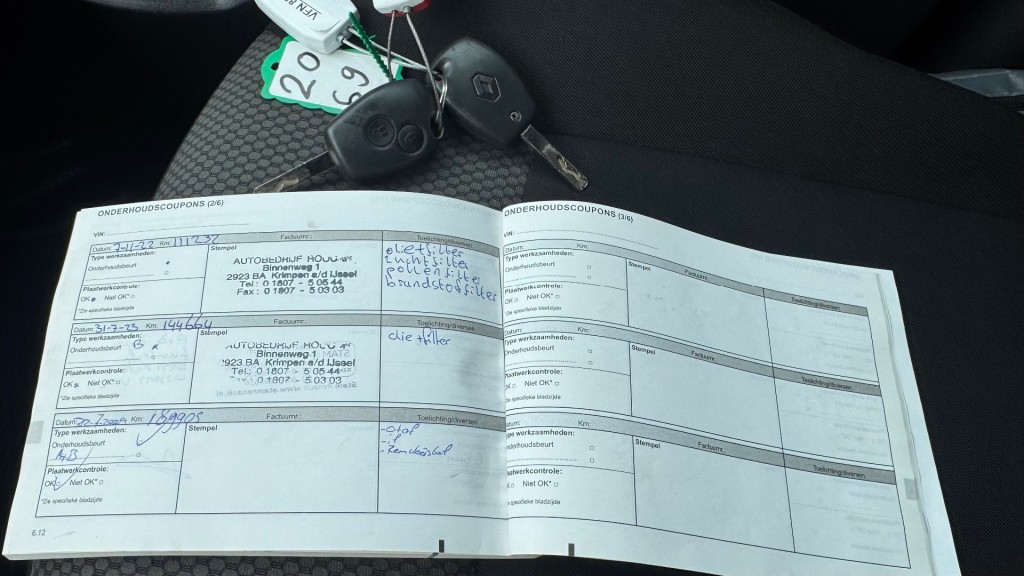 VFN 8
20
69
ONDERHOUDSCOUPONS (2/6)
VIN:
Datum: 7-11-22 Km: 111232 Factuurnr.: Toelichting/diversen
Type werkzaamheden:
Onderhoudsbeurt
Stempel
AUTOBEDRIJF HOUG
Binnenweg 1
2923 BA Krimpen a/d IJssel
Tel.: 0 1807 - 5 05 44
Fax : 0 1807 - 5 03 03
oliefilter
luchtfilter
pollenfilter
brandstoffilter
Plaatwerkcontrole:
OK Niet OK*
*Zie specifieke bladzijde
Datum: 31-7-23 Km: 144664 Factuurnr.: Toelichting/diversen
Type werkzaamheden:
Onderhoudsbeurt B
Stempel
AUTOBEDRIJF HOUG
Binnenweg 1
2923 BA Krimpen a/d IJssel
Tel.: 0 1807 - 5 05 44
0 1807 - 5 03 03
olie filter
Plaatwerkcontrole:
OK Niet OK*
*Zie specifieke bladzijde
Datum: Km: Factuurnr.: Toelichting/diversen
Type werkzaamheden:
Onderhoudsbeurt
A+B
Stempel
Plaatwerkcontrole:
OK Niet OK*
*Zie specifieke bladzijde
6.12
ONDERHOUDSCOUPONS (3/6)
VIN:
Datum: Km: Factuurnr.: Toelichting/diversen
Type werkzaamheden:
Onderhoudsbeurt
Stempel
Plaatwerkcontrole:
OK Niet OK*
*Zie specifieke bladzijde
Datum: Km: Factuurnr.: Toelichting/diversen
Type werkzaamheden:
Onderhoudsbeurt
Stempel
Plaatwerkcontrole:
OK Niet OK*
*Zie specifieke bladzijde
Datum: Km: Factuurnr.: Toelichting/diversen
Type werkzaamheden:
Onderhoudsbeurt
Stempel
Plaatwerkcontrole:
OK Niet OK*
*Zie specifieke bladzijde